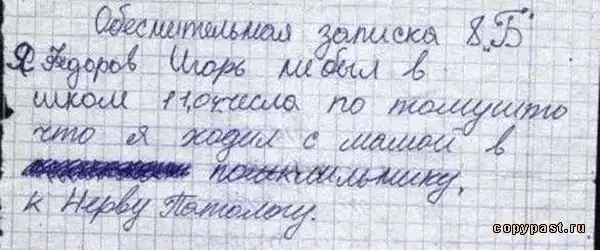 Обеснительная записка 8 „Б"
Я Федоров Игорь не был в
школ 11,04 числа по томушто
что я ходил с мамой в
к Нерву Патологу.
copypast.ru